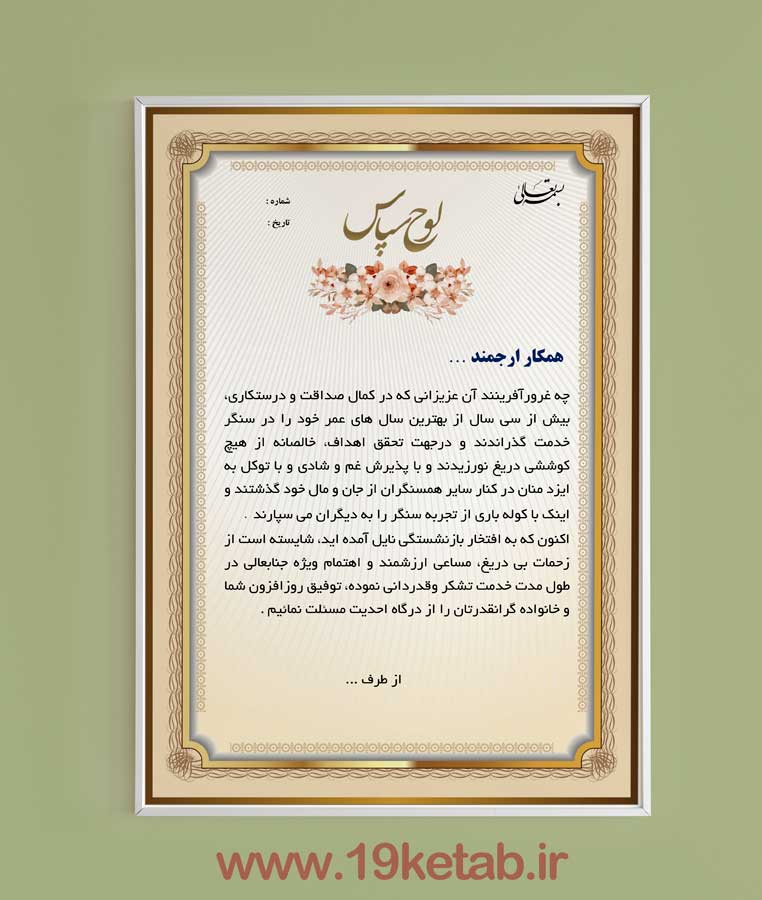 بسمه تعالی
شماره :
تاریخ :
لوح سپاس
همکار ارجمند ...
چه غرورآفرینند آن عزیزانی که در کمال صداقت و درستکاری،
بیش از سی سال از بهترین سال های عمر خود را در سنگر
خدمت گذراندند و درجهت تحقق اهداف، خالصانه از هیچ
کوششی دریغ نورزیدند و با پذیرش غم و شادی و با توکل به
ایزد منان در کنار سایر همسنگران از جان و مال خود گذشتند و
اینک با کوله باری از تجربه سنگر را به دیگران می سپارند .
اکنون که به افتخار بازنشستگی نایل آمده اید، شایسته است از
زحمات بی دریغ، مساعی ارزشمند و اهتمام ویژه جنابعالی در
طول مدت خدمت تشکر وقدردانی نموده، توفیق روزافزون شما
و خانواده گرانقدرتان را از درگاه احدیت مسئلت نمائیم .
از طرف ...
www.19ketab.ir